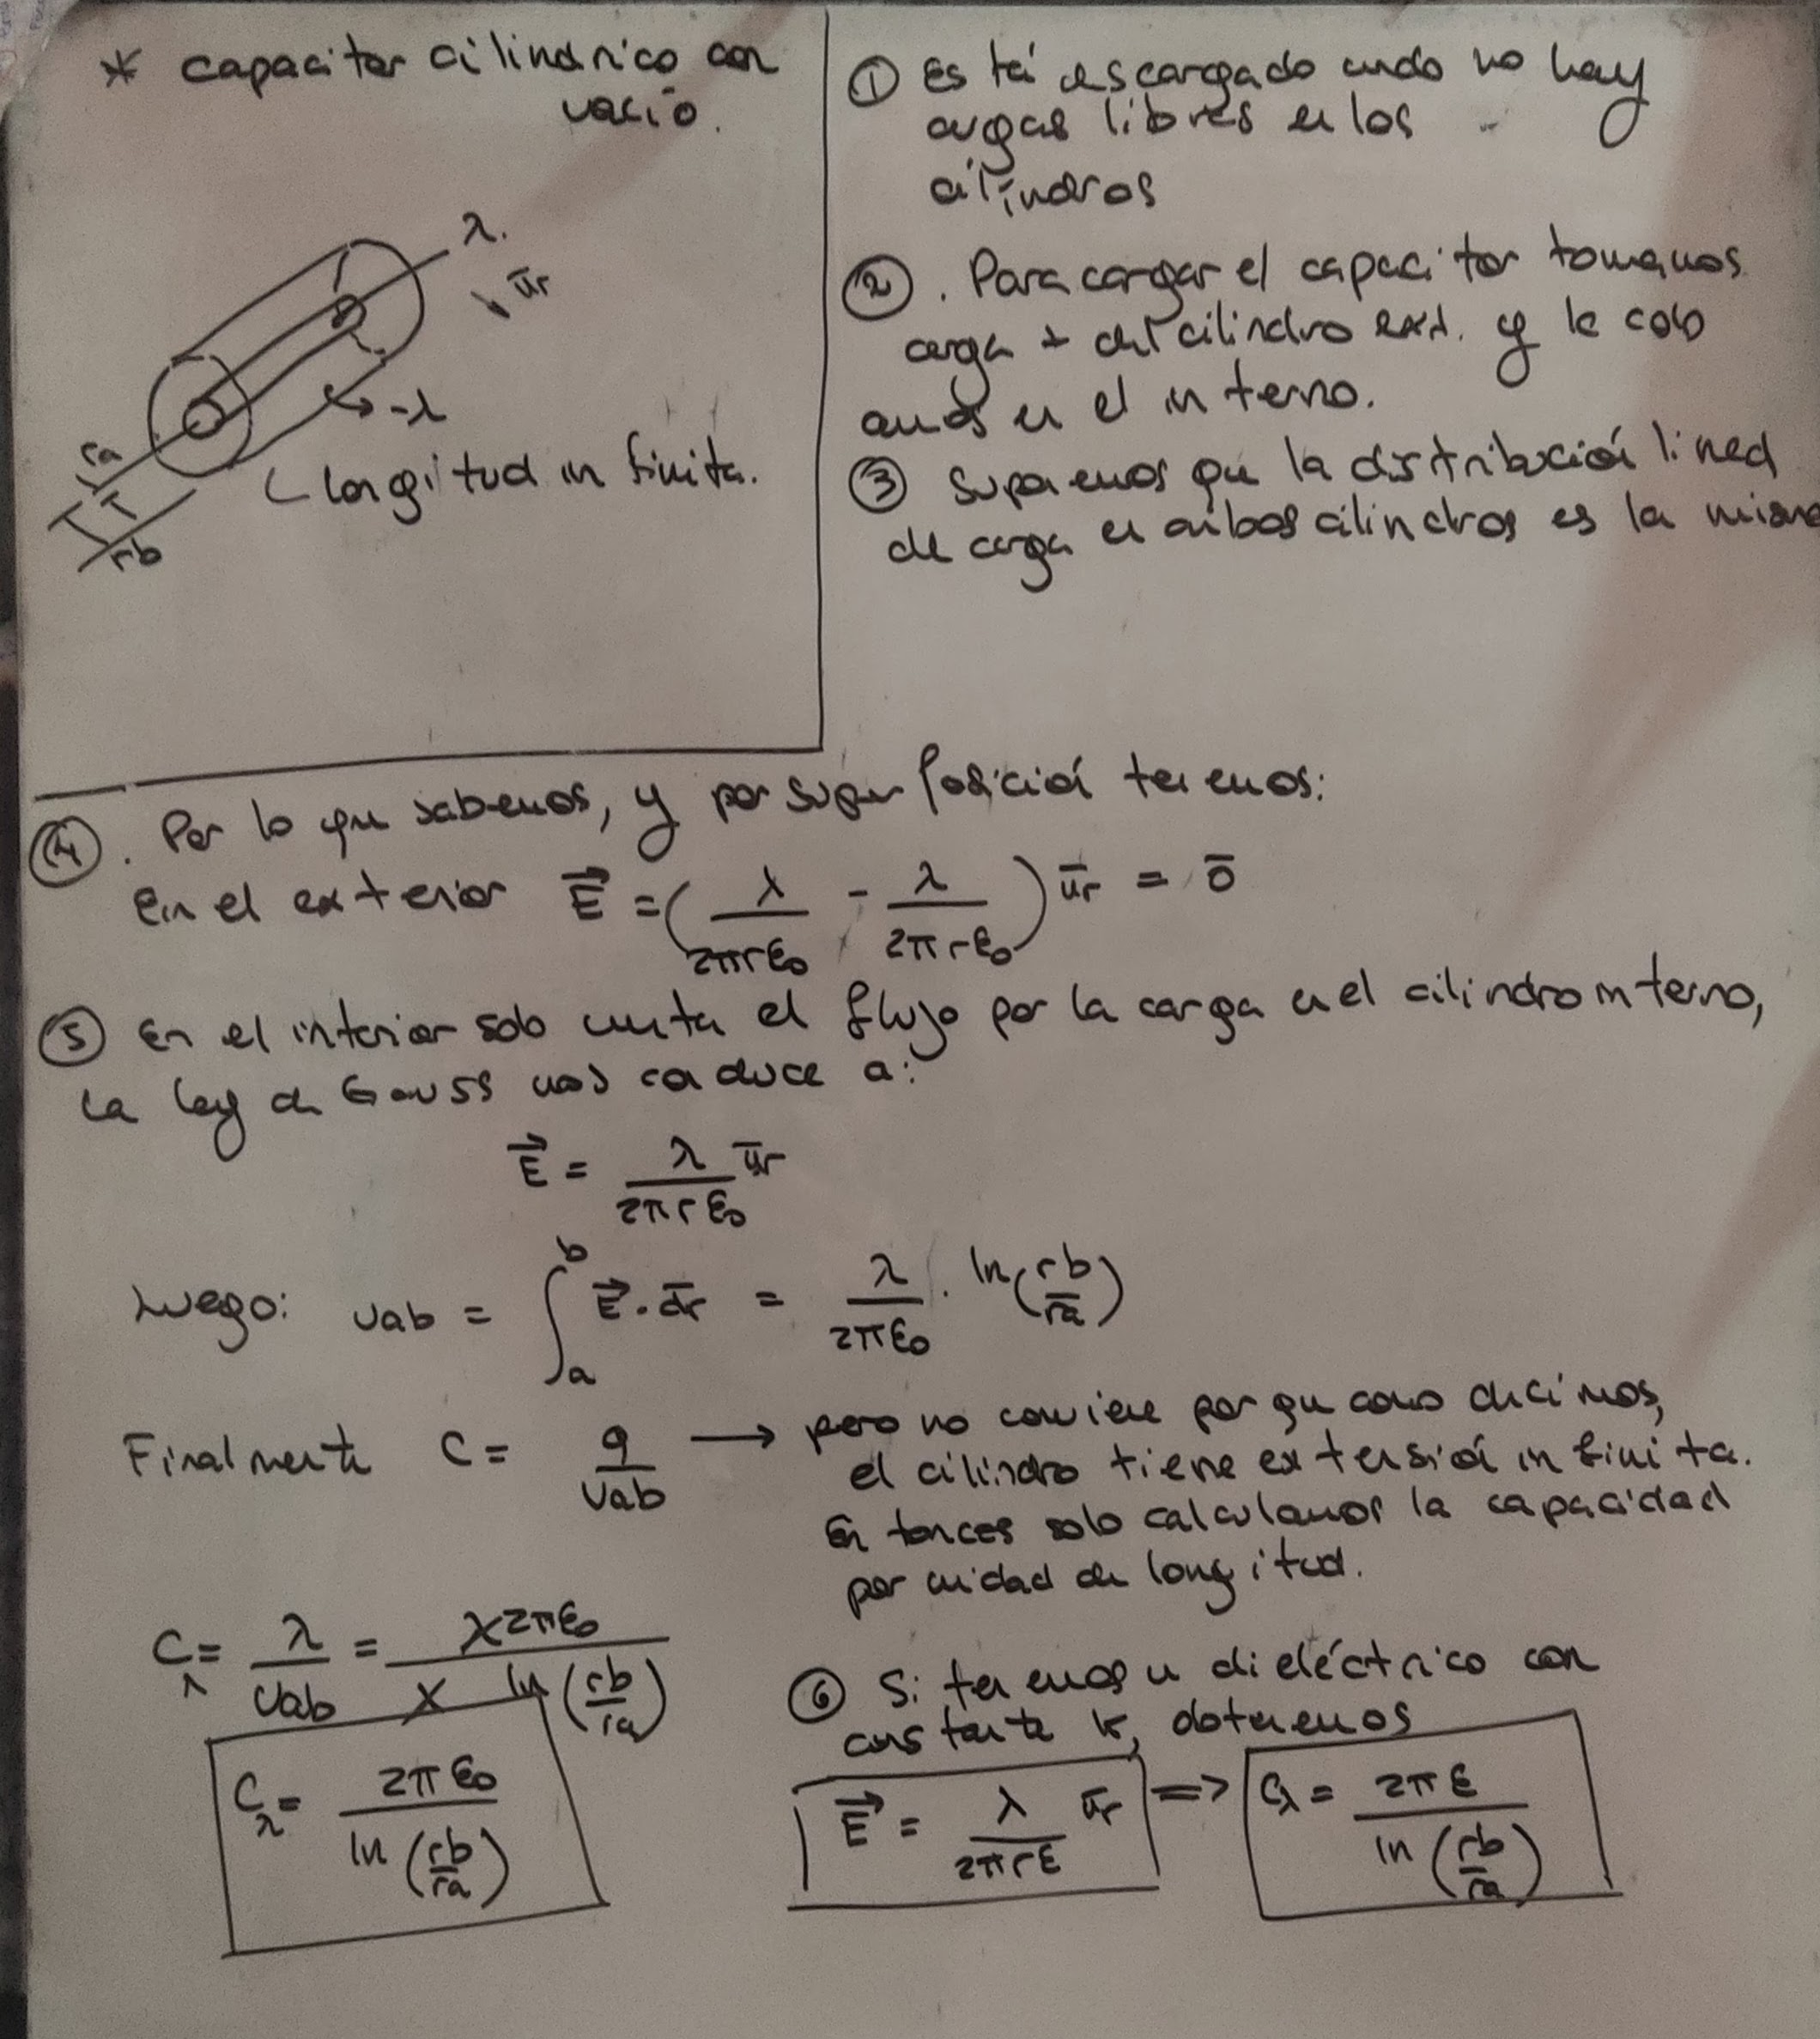 * Capacitor cilindrico con
vacío.
λ.
ūr
-λ
ra
rb
Longitud infinita.
① Está descargado cuando no hay
cargas libres en los
cilindros
②. Para cargar el capacitor tomamos
carga + del cilindro ext. y la colo
camos en el interno.
③ Suponemos que la distribución lineal
de carga en ambos cilindros es la misma
④. Por lo que sabemos, y por superposición tenemos:
En el exterior E⃗ = (λ/2πrε₀ - λ/2πrε₀) ūr = 0̄
⑤ En el interior solo cuenta el flujo por la carga en el cilindro interno,
La ley de Gauss nos conduce a:
E⃗ = λ/2πrε₀ ūr
Luego: Vab = ∫ₐᵇ E⃗ · d̄r = λ/2πε₀ · ln(rb/ra)
Finalmente C = q/Vab → pero no conviene porque como decimos,
el cilindro tiene extensión infinita.
Entonces solo calculamos la capacidad
por unidad de longitud.
C_λ = λ/Vab = λ2πε₀/λ ln(rb/ra)
C_λ = 2πε₀/ln(rb/ra)
⑥ Si tenemos un dieléctrico con
constante k, obtenemos
E⃗ = λ/2πrε ūr => C_λ = 2πε/ln(rb/ra)